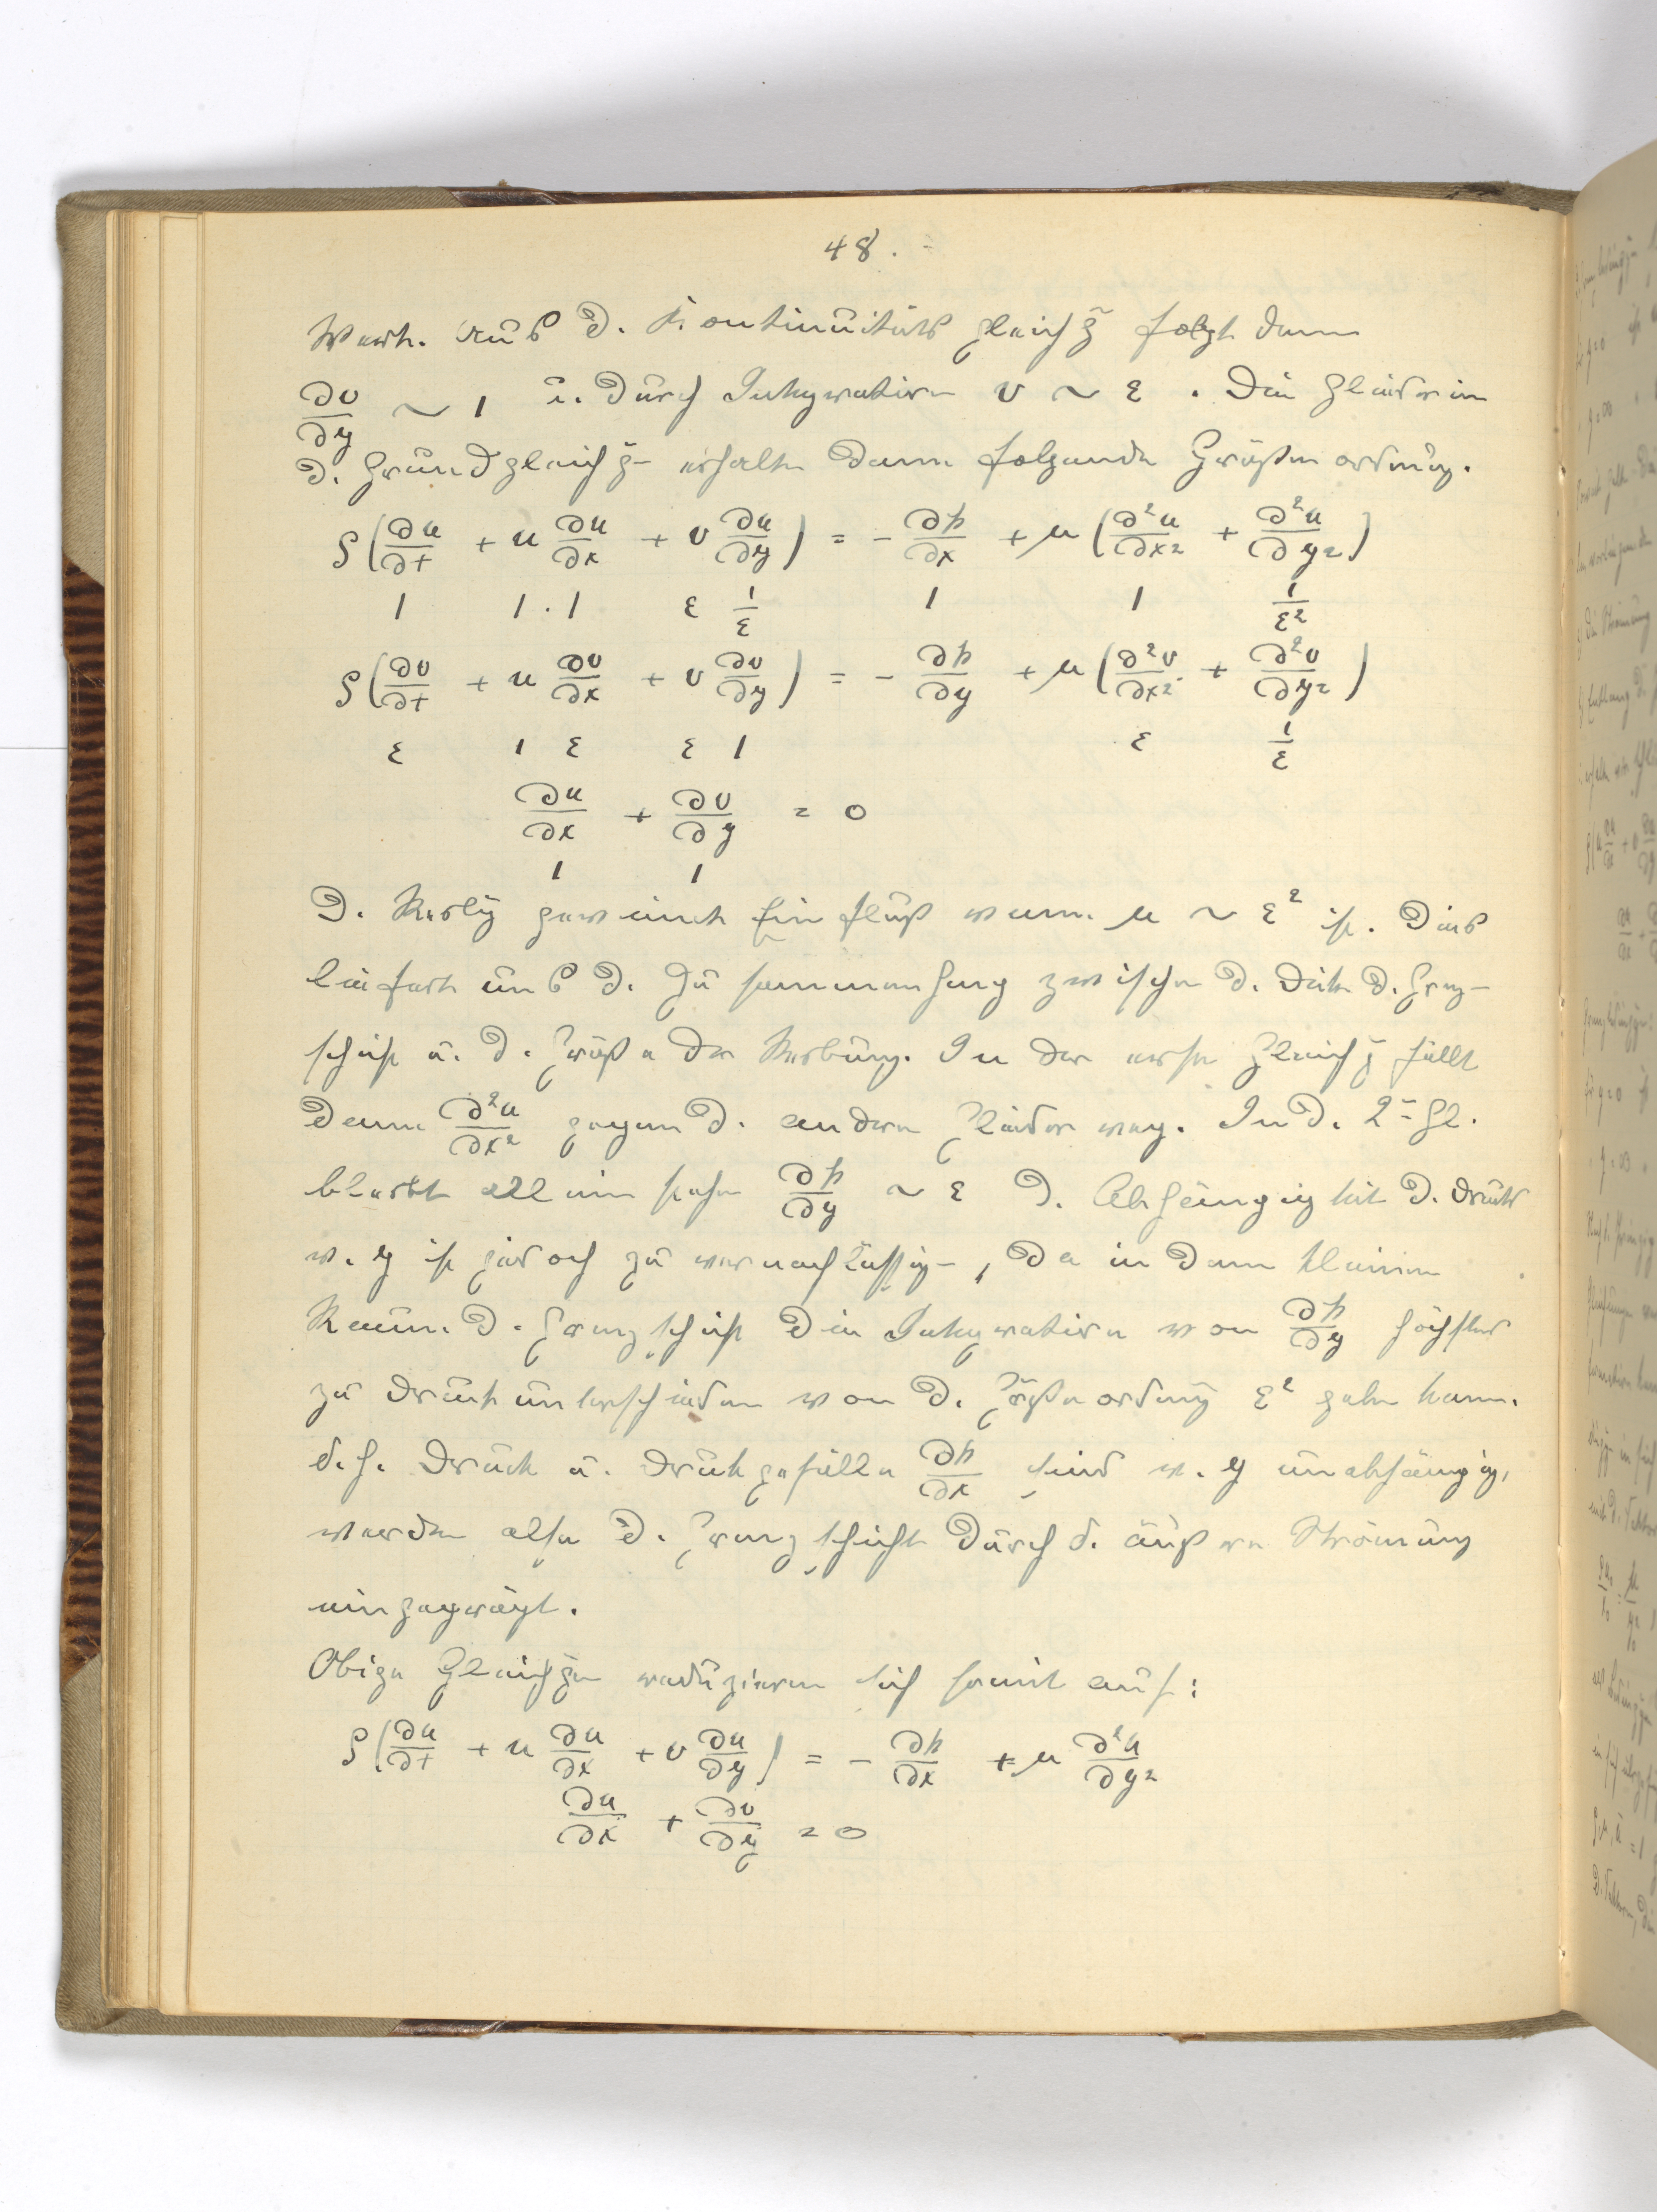 48.
Werte. Aus d. Kontinuitäts gleichg folgt dann
∂v/∂y ~ 1 u. durch Integration v ~ ε. Die Glieder in
d. Grundgleichg– erhalten dann folgende Größenordnung.
ρ(∂u/∂t + u ∂u/∂x + v ∂u/∂y) = − ∂p/∂x + μ(∂²u/∂x² + ∂²u/∂y²)
1 1·1 ε 1/ε 1 1 1/ε²
ρ(∂v/∂t + u ∂v/∂x + v ∂v/∂y) = − ∂p/∂y + μ(∂²v/∂x² + ∂²v/∂y²)
ε 1 ε ε 1 ε 1/ε
∂u/∂x + ∂v/∂y = 0
1 1
D. Reibg gewinnt Einfluß wenn μ ~ ε² ist. Dies
liefert uns d. Zusammenhang zwischen d. Dicke d. Grenz-
schicht u. d. Größe der Reibung. In der ersten Gleichg fällt
dann ∂²u/∂x² gegen d. andern Glieder weg. In d. 2= Gl.
bleibt allein stehen ∂p/∂y ~ ε D. Abhängigkeit d. Drucks
v. y ist jedoch zu vernachlässig–, da in dem kleinen
Raum d. Grenzschicht die Integration von ∂p/∂y höchstens
zu Druckunterschieden von d. Größenordnung ε² geben kann.
d.h. Druck u. Druckgefälle ∂p/∂x sind v. y unabhängig,
werden also d. Grenzschicht durch d. äußere Strömung
eingeprägt.
Obige Gleichgen reduzieren sich somit auf:
ρ(∂u/∂t + u ∂u/∂x + v ∂u/∂y) = − ∂p/∂x + μ ∂²u/∂y²
∂u/∂x + ∂v/∂y = 0